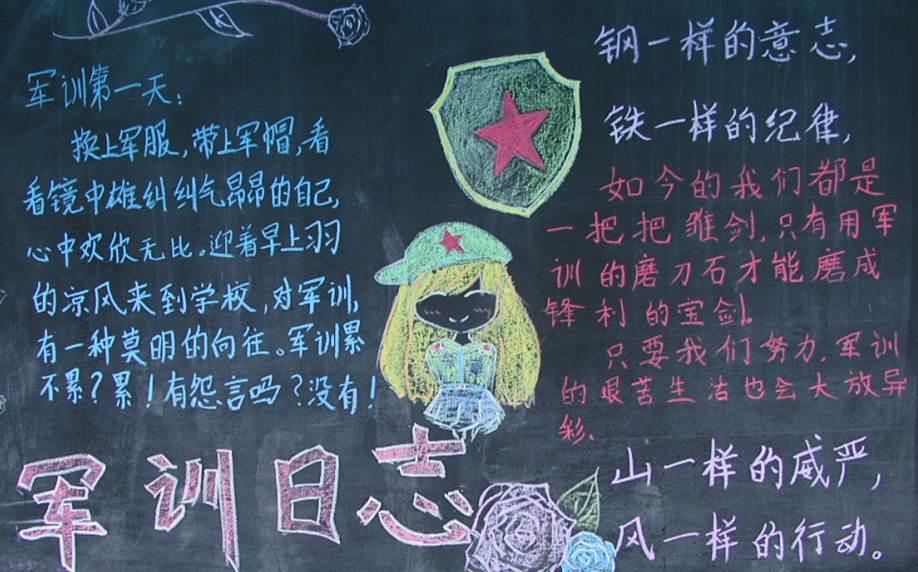 军训第一天:
换上军服,带上军帽,看
看镜中雄纠纠气昂昂的自己,
心中欢欣无比。迎着早上羽
的凉风来到学校,对军训,
有一种莫明的向往。军训累
不累?累!有怨言吗?没有!
军训日志
钢一样的意志,
铁一样的纪律,
如今的我们都是
一把把雏剑,只有用军
训的磨刀石才能磨成
锋利的宝剑。
只要我们努力,军训
的艰苦生活也会大放异
彩、
山一样的威严,
风一样的行动。